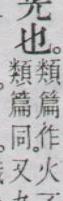 光也。
類篇作火
類篇同。又